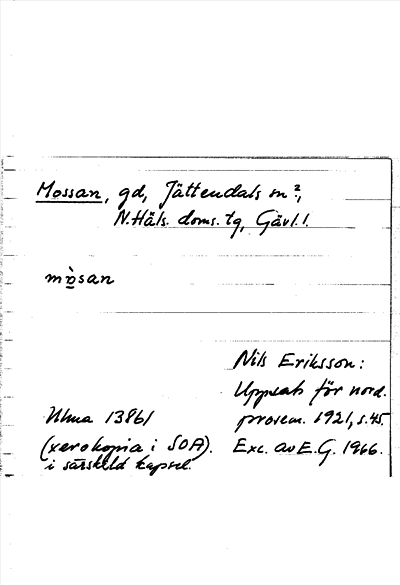 Mossan, gd, Jättendals sn ?,
N. Häls. doms. tg, Gävl. l.
mò̖̱san
Nils Eriksson:
Uppsats för nord.
prosem. 1921, s. 45.
Exc. av E.G. 1966.
Ulma 13861
(xerokopia i SOA).
i särskild kapsel.